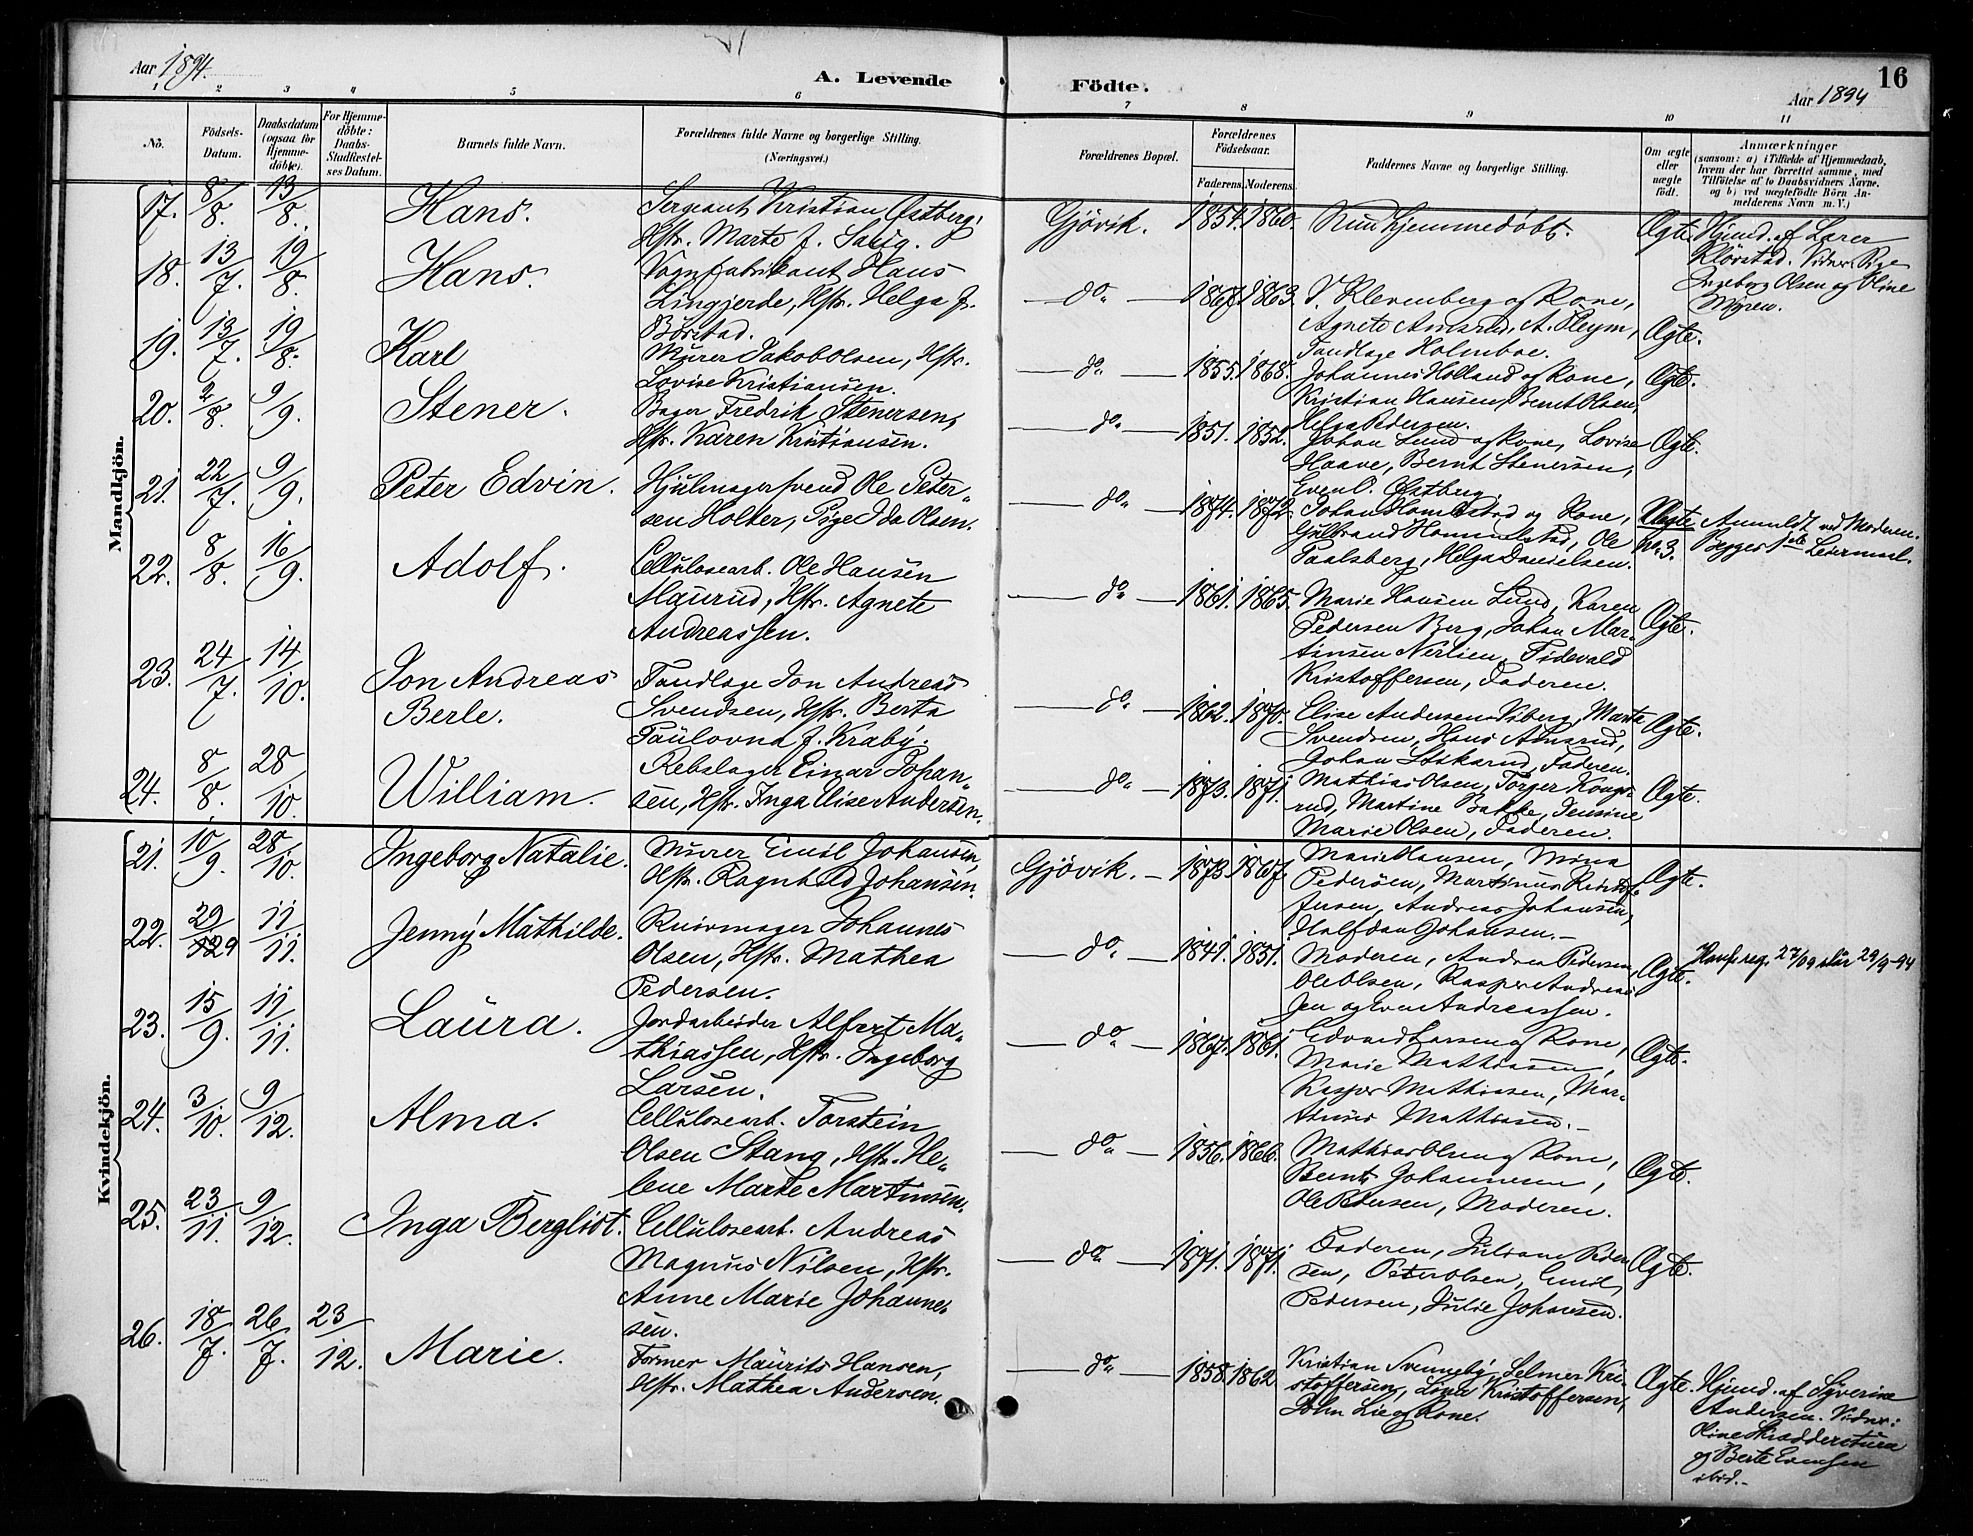 Aar 1894.
A. Levende
Födte.
16
Aar 1894
1 2 3 4 5 6 7 8 9 10 11
No.
Födsels-Datum.
Daabsdatum (ogsaa for Hjemme-döbte).
For Hjemme-döbte: Daabs-Stadfæstel-ses Datum.
Barnets fulde Navn.
Forældrenes fulde Navne og borgerlige Stilling.
(Næringsvei.)
Forældrenes Bopæl.
Forældrenes Födselsaar.
Faderens. Moderens.
Faddernes Navne og borgerlige Stilling.
Om ægte eller uægte födt.
Anmærkninger
(saasom: a) i Tilfælde af Hjemmedaab, hvem der har forrettet samme, med Tilföielse af to Daabsvidners Navne, og b) ved uægtefödte Börn An-melderens Navn m. V.)
Mandkjön.
17. 8/8. 13/8. Hans. Sergeant Kristian Østberg,
Hstr. Marte f. Gjövik. 1854. 1860. Kun hjemmedøbt. Ægte. Hjmd. af Lærer
Klørstad. Vidner Pige
Ingeborg Olsen og Oline
Myren.
18. 13/7. 19/8. Hans. Vognfabrikant Hans
Lingjerde, Hstr. Helga f.
Börstad. do 1867. 1863. Klevenberg og Kone,
Agnete A. Pleym,
Tandlæge Holmboe. Ægte.
19. 13/7. 19/8. Karl Murer Jakob Olsen, Hstr.
Lovise Kristiansen. do 1855. 1868. Johannes Holland og Kone,
Kristian Hansen, Bernt Olsen,
Helga Pedersen. Ægte.
20. 2/8. 9/9. Stener. Bager Fredrik Stenersen,
Hstr. Karen Kristiansen. do 1851. 1852. Johan Lund og Kone, Lovise
Haave, Bernt Stenersen,
Even O. Østberg. Ægte.
21. 22/7. 9/9. Peter Edvin. Hjulmagersvend Ole Peter-
sen Holter, Pige Ida Olsen. do 1874. 1872. Johan Hommelstad og Kone,
Gulbrand Hommelstad, Ole
Paalsberg, Helga Danielsen. Uægte
no. 3. Anmeldt ved Moderen.
Begges 1ste Leiermaal.
22. 8/8. 16/9. Adolf. Cellulosearb. Ole Hansen
Maurud, Hstr. Agnete
Andreassen. do 1861. 1865. Marie Hansen Lund, Karen
Pedersen Berg, Johan Mar-
tinsen Nerlien, Tidevald
Kristoffersen, Faderen. Ægte.
23. 24/7. 14/10. Jon Andreas
Berle. Tandlæge Jon Andreas
Svendsen, Hstr. Berta
Paulovna f. Kraby. do 1862. 1870. Elise Andersen Viberg, Marte
Svendsen, Hans
Johan Stikarud, Faderen. Ægte.
24. 8/8. 28/10. William. Rebslager Einar Johan-
sen, Hstr. Inga Elise Andersen. do 1873. 1871. Mathias Olsen, Torger Kongs-
rud, Martine Bakke, Jensine
Marie Olsen, Faderen. Ægte.
Kvindekjön.
21. 10/9. 28/10. Ingeborg Natalie. Murer Emil Johansen,
Hstr. Ragnhild Johansen. Gjövik. 1873. 1867. Marie Hansen, Mina
Pedersen, Martinus Kristof-
fersen, Andreas Johansen,
Halfdan Johansen. Ægte.
22. 29/9 11/11. Jenny Mathilde. Kurvmager Johannes
Olsen, Hstr. Mathea
Pedersen. do 1841. 1851. Moderen, Andrea Pedersen,
Ole Olsen, Kasper Andreas-
sen og Even Andreassen. Ægte. Konf. reg. 27/09 står 29/9-94
23. 15/9. 11/11. Laura. Jordarbeider Alfert Ma-
thiassen, Hstr. Ingeborg
Larsen. do 1867. 1861. Edvard Larsen og Kone,
Marie Mathiasen,
Kasper Mathiasen, Mar-
tinus Mathiasen. Ægte.
24. 3/10. 9/12. Alma. Cellulosearb. Torstein
Olsen Stang, Hstr. He-
lene Marie Martinsen. do 1856. 1866. Mathias Olsen og Kone,
Bernt Johannesen,
Ole Pedersen, Moderen. Ægte.
25. 23/11. 9/12. Inga Bergliot. Cellulosearb. Andreas
Magnus Nilsen, Hstr.
Anne Marie Johanne-
sen. do 1871. 1871. Faderen, Juliane Peder-
sen, Peter Olsen, Emil
Pedersen, Julie Johansen. Ægte.
26. 18/7. 26/7. 23/12. Marie. Former Maurits Hansen,
Hstr. Mathea Andersen. do 1858. 1862. Kristian Svenneby, Selmer Kri-
stoffersen, Lovise Kristoffersen,
John Lie og Kone. Ægte. Hjmd. af Syverine
Andersen. Vidner:
Oline Skrædderstuen
og Berte Evensen
ibid.